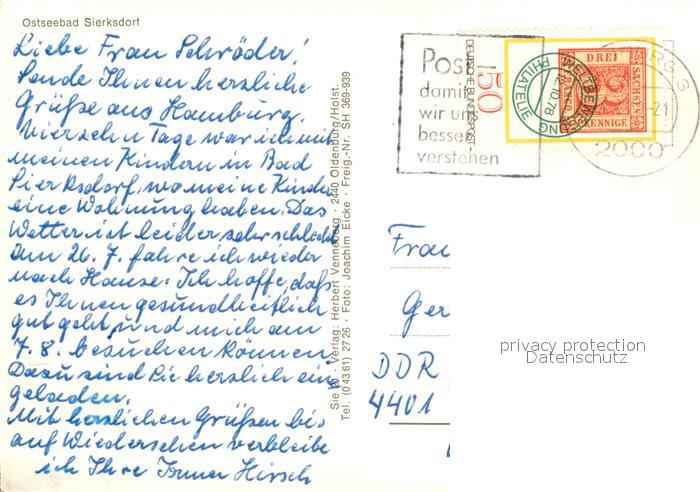 Ostseebad Sierksdorf
Liebe Frau Schröder!
Sende Ihnen herzliche
Grüße aus Hamburg.
Vierzehn Tage war ich mit
meinen Kindern in Bad
Sierksdorf, wo meine Kinder
eine Wohnung haben. Das
Wetter ist leider sehr schlecht
am 26. 7. fahre ich wieder
nach Hause. Ich hoffe, daß
es Ihnen gesundheitlich
gut geht, und mich am
7. 8. besuchen können.
Dazu sind Sie herzlich ein
geladen.
Mit herzlichen Grüßen bis
auf Wiedersehen verbleibe
ich Ihre Hirsch
Verlag: Herbert Venneburg · 2440 Oldenburg/Holst.
Tel. (0 43 61) 27 26 · Foto: Joachim Eicke · Freig.-Nr. SH 369-939
Post
damit
wir uns
besser
verstehen
DEUTSCHE BUNDESPOST
50
PHILATELIE
WELTBEWEGUNG
12.10.78
DREI
SACHSEN
PFENNIGE
3
-21
2000
Frau
Ger
DDR
4401
privacy protection
Datenschutz